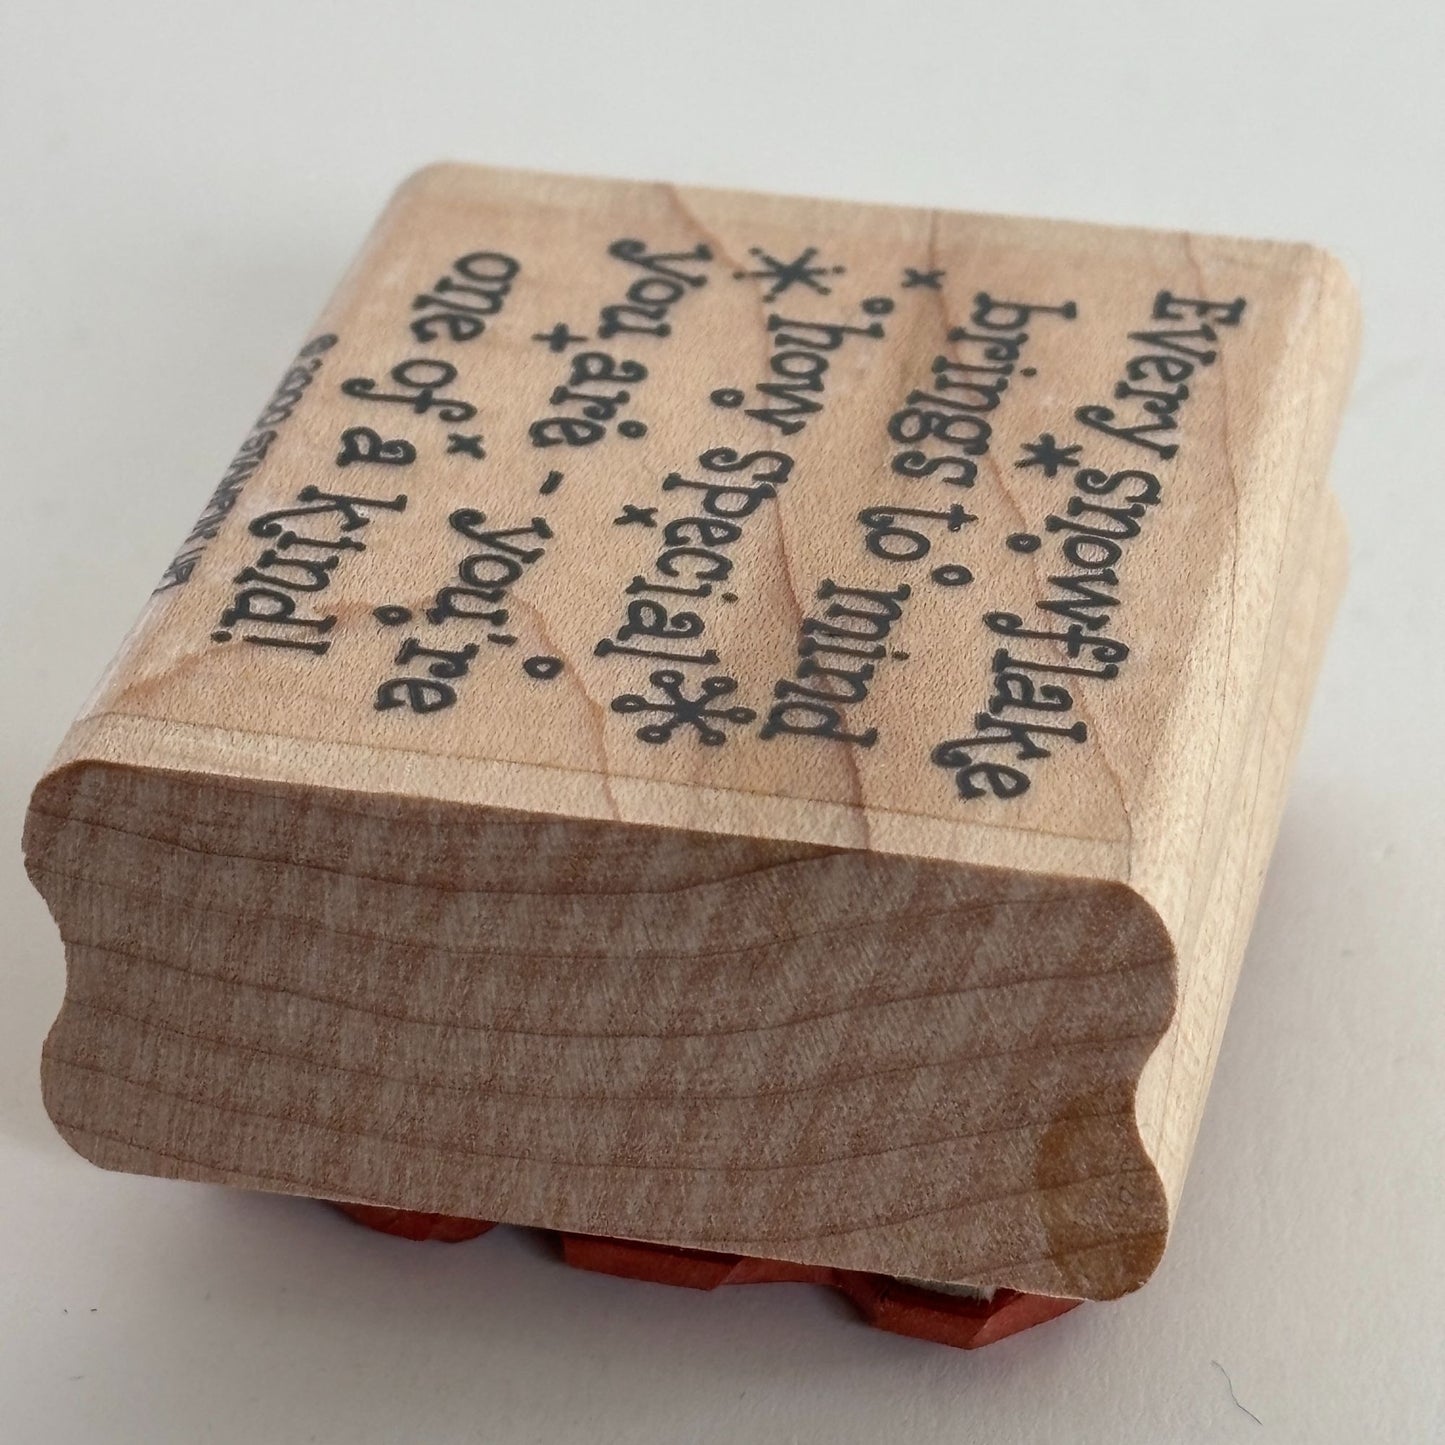 Every snowflake
brings to mind
how special
you are - you're
one of a kind!
© 2000 STAMPIN' UP!